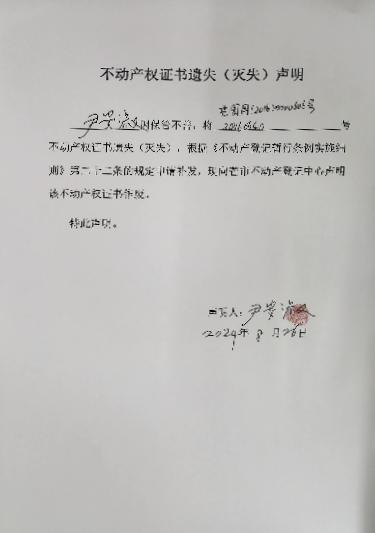 不动产权证书遗失（灭失）声明
因保管不善，将
号
不动产权证书遗失（灭失），根据《不动产登记暂行条例实施细
则》第二十二条的规定申请补发，现向芒市不动产登记中心声明
该不动产权证书作废。
特此声明。
声明人：尹
2024年8月26日